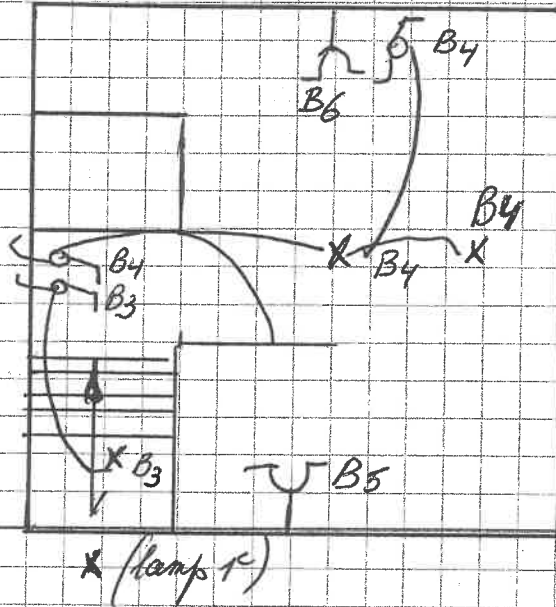 B4
B6
B4
B4
B4
B3
B3
B5
X (lamp 1e)